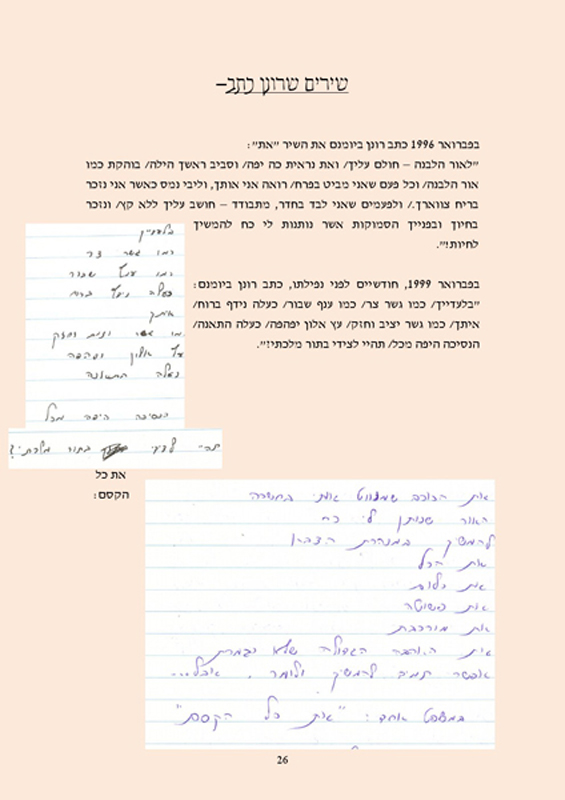 שירים שרונן כתב–
בפברואר 1996 כתב רונן ביומנם את השיר "את":
"לאור הלבנה – חולם עליך/ ואת נראית כה יפה/ וסביב ראשך הילה/ בוהקת כמו
אור הלבנה/ וכל פעם שאני מביט בפרח/ רואה אני אותך, וליבי נמס כאשר אני נזכר
בריח צווארך./ ולפעמים שאני לבד בחדר, מתבודד – חושב עליך ללא קץ/ ונזכר
בחיוך ובפנייך הסמוקות אשר נותנות לי כח להמשיך
לחיות!".
בפברואר 1999, חודשיים לפני נפילתו, כתב רונן ביומנם:
"בלעדייך/ כמו גשר צר/ כמו ענף שבור/ כעלה נידף ברוח/
איתך/ כמו גשר יציב וחזק/ עץ אלון יפהפה/ כעלה התאנה/
הנסיכה היפה מכל/ תהיי לצידי בתור מלכתי?".
בלעדייך
כמו גשר צר
כמו ענף שבור
כעלה נידף ברוח
איתך
כמו גשר יציב וחזק
עץ אלון יפהפה
כעלה התאנה
הנסיכה היפה מכל
תהיי לצידי בתור מלכתי?
את כל
הקסם:
את הכוכב שמנווט אותי בחשיכה
האור שנותן לי כח
להמשיך במנהרת הצבא
את הכל
את כלום
את פשוטה
את מורכבת
את האהבה הגדולה שלא נגמרת
אפשר תמיד להמשיך ולומר, אבל...
במשפט אחד: "את כל הקסם"
26